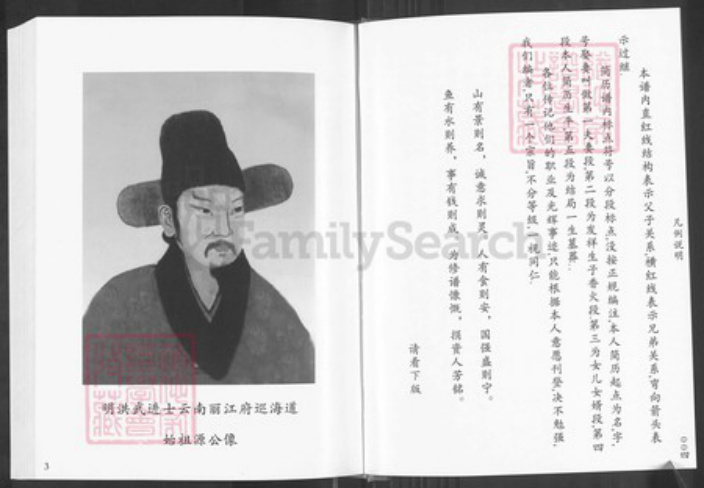 凡例说明
本谱内直红线结构表示父子关系,横红线表示兄弟关系,弯向箭头表
示过继.
简历谱内标点符号以分段标点,没按正规编注,本人简历起点为名,字,
号,娶妻叫做第一夫妻段,第二段为发祥生子香火段,第三为女儿女婿段,第四
段本人简历生平,第五段为结局一生墓葬..
各位传记他们的职业及光辉事迹,只能根据本人意愿刊登,决不勉强,
我们编者,只有一个宗旨,不分等级,一视同仁.
山有景则名,诚意求则灵。人有食则安,国强盛则宁。
鱼有水则养,事有钱则成。为修谱慷慨,撰资人芳铭。
请看下版
〇〇四
明洪武进士云南丽江府巡海道
始祖源公像
3
FamilySearch